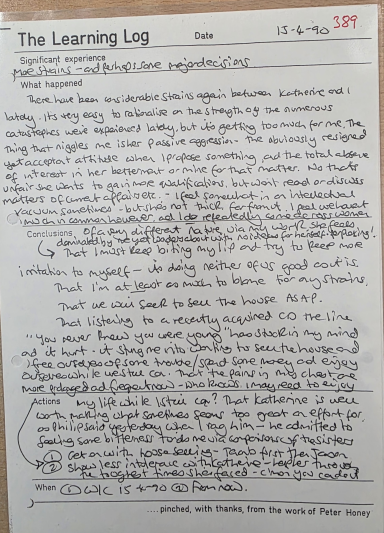 389
The Learning Log Date 15-4-90
Significant experience
More strains - and perhaps some major decisions
What happened
There have been considerable strains again between Katherine and I
lately. It's very easy to rationalise on the strength of the numerous
catastrophes we've experienced lately, but it's getting too much for me. The
thing that niggles me is her passive aggression - the obviously resigned
yet acceptant attitude when I propose something, and the total absence
of interest in her betterment or mine for that matter. No that's
unfair she wants to gain more qualifications, but won't read or discuss
matters of current affairs etc. - I feel somewhat in an intellectual
vacuum sometimes - but she's not thick far from it, I feel we haven't
much in common however, and I do repeatedly come across women
Conclusions of a very different nature, via my work. She feels
dominated by me yet
That I must keep biting my lip and try to keep more
irritation to myself - it's doing neither of us good as it is.
That I'm at least as much to blame for any strains.
That we will seek to sell the house ASAP.
That listening to a recently acquired CD the line
"you never knew you were young" has stuck in my mind
and it hurt. It stung me into wanting to sell the house and
free ourselves of some trouble/spend some money and enjoy
ourselves while we still can. That the pains in my chest are
more prolonged and frequent now - who knows I may need to enjoy
Actions my life while I still can? That Katherine is well
worth making what sometimes seems too great an effort for.
as Philip said yesterday when I rang him - he admitted to
feeling some bitterness
① Get on with house selling - first then
② Show less intolerance with Katherine - helped through
the toughest times she faced - c'mon you can do it
When ① W/C 15-4-90 ② From now.
....pinched, with thanks, from the work of Peter Honey